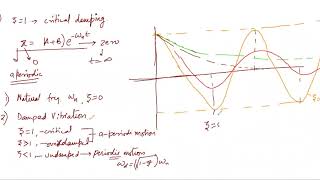 ξ=1 → critical damping
x = (A+B)e^-ωnt → zero
0 t=∞
aperiodic
1) Natural frq ωn, ξ=0
2) Damped Vibration
ξ=1, critical
ξ>1, overdamped a-periodic motion
ξ<1, undamped → periodic motions
ωd=(√1-ξ²)ωn
ξ=